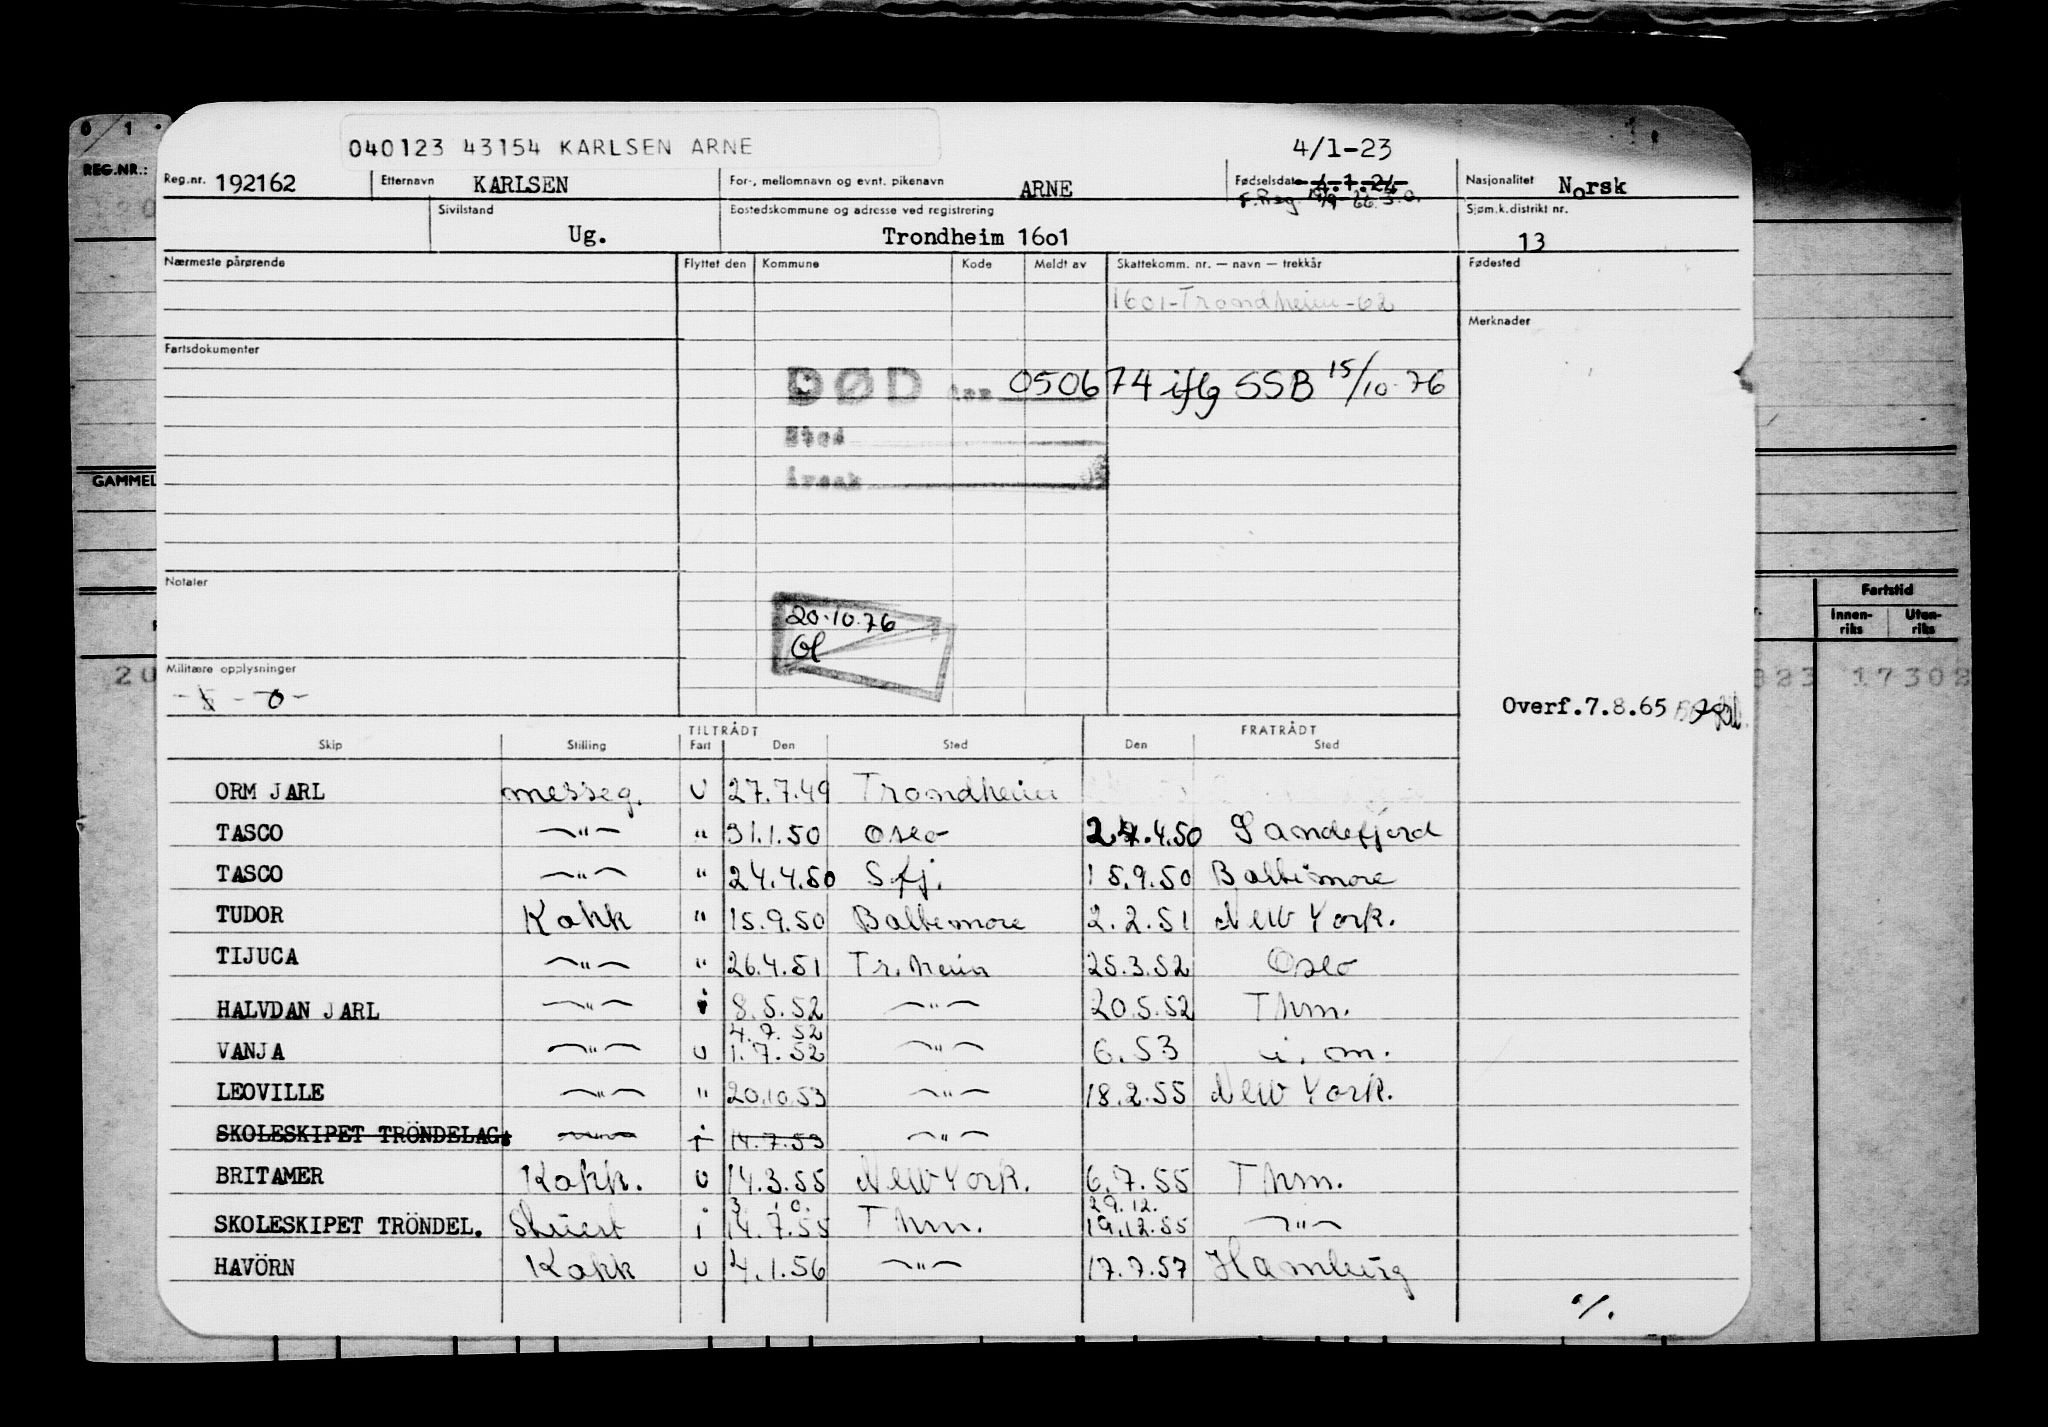 040123 43154 KARLSEN ARNE
4/1-23
0 1
REG.NR.:
Reg.nr. 192162 Etternavn KARLSEN For-, mellomnavn og evnt. pikenavn ARNE Fødselsdato 4.1.24 Nasjonalitet Norsk
F.Reg.
Sivilstand Ug. Bostedskommune og adresse ved registrering Trondheim 1601 Sjøm.k.distrikt nr. 13
Nærmeste pårørende Flyttet den Kommune Kode Meldt av Skattekomm. nr. — navn — trekkår Fødested
1601-Trondheim-62
Merknader
Fartsdokumenter
DØD den 050674 iflg SSB 15/10-76
Sted
Årsak
GAMMEL
Notater
Fartstid
Innen-riks Uten-riks
20.10.76
Ol
Militære opplysninger
- 0 -
20
323 17302
Overf.7.8.65
TILTRÅDT FRATRÅDT
Skip Stilling Fart Den Sted Den Sted
ORM JARL messeg. U 27.7.49 Trondheim
TASCO —"— " 31.1.50 Oslo 24.4.50 Sandefjord
TASCO —"— " 24.4.50 Sfj. 15.9.50 Baltimore
TUDOR Kokk " 15.9.50 Baltimore 2.2.51 New York.
TIJUCA —"— " 26.4.51 Tr.heim 25.3.52 Oslo
HALVDAN JARL —"— i 8.5.52 —"— 20.5.52 Thm.
4.7.52
VANJA —"— U 1.7.52 —"— 6.53 u. om.
LEOVILLE —"— " 20.10.53 —"— 18.2.55 New York.
SKOLESKIPET TRÖNDELAG. —"— i 14.7.53 —"—
BRITAMER Kokk. U 14.3.55 New York. 6.7.55 Thm.
29.12.
SKOLESKIPET TRÖNDEL. Stuert i 14.7.55 Thm. 19.12.55 —"—
HAVÖRN Kokk U 4.1.56 —"— 17.7.57 Hamburg
./.